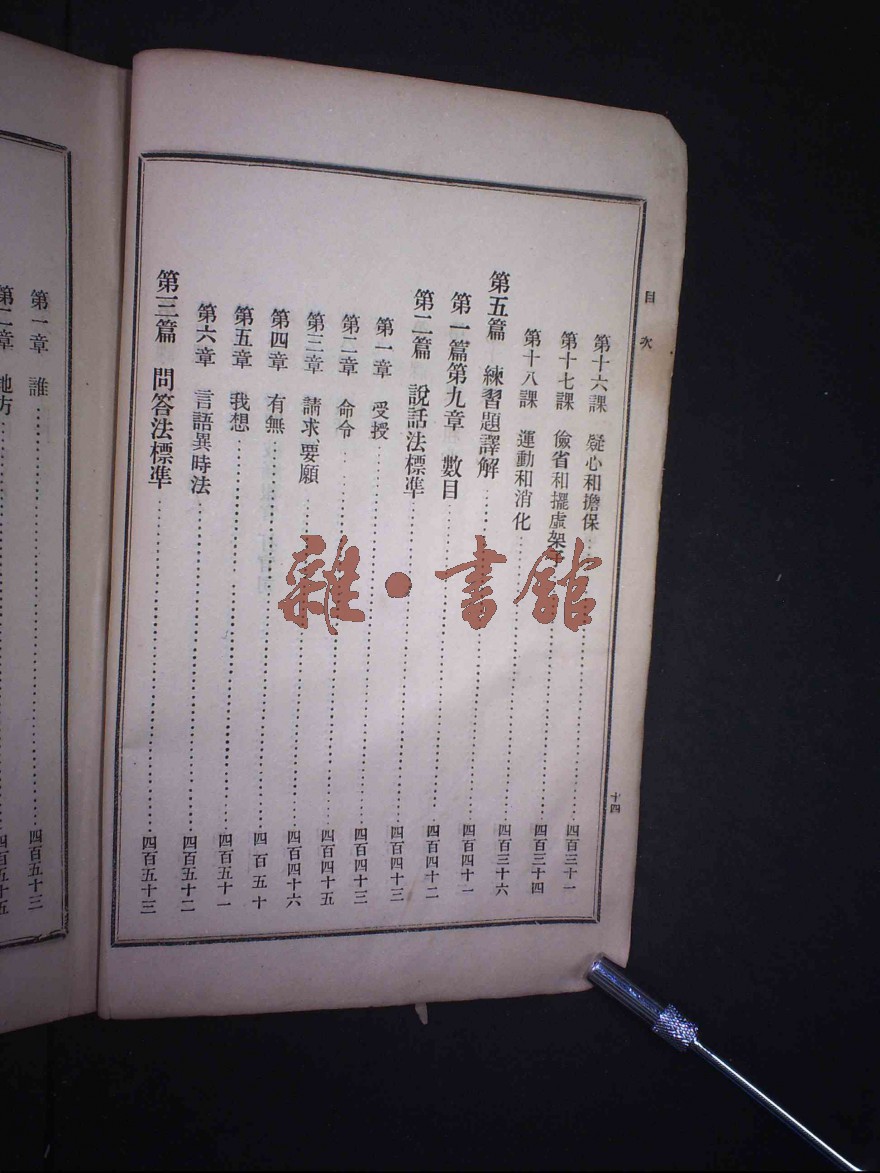 目次
第十六課 疑心和擔保……四百三十一
第十七課 儉省和擺虛架子……四百三十四
第十八課 運動和消化……四百三十六
第五篇 練習題譯解……四百四十一
第一篇第九章 數目……四百四十二
第二篇 說話法標準……四百四十三
第一章 受授……四百四十三
第二章 命令……四百四十五
第三章 請求、要願……四百四十六
第四章 有無……四百五十
第五章 我想……四百五十一
第六章 言語異時法……四百五十二
第三篇 問答法標準……四百五十三
十四
第一章 誰……四百五十三
第二章 地方……四百五十五
雜·書館